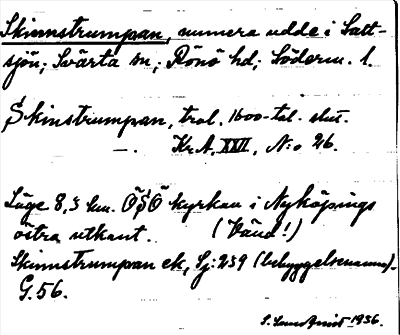 Skinnstrumpan, numera udde i Salt-
sjön; Svärta sn; Rönö hd; Söderm. l.
Skinstrumpan, trol. 1600-tal. slut.
—. Kr.A. XXII, N:o 26.
Läge 8,3 km. ÖSÖ kyrkan i Nyköpings
östra utkant. (Vänd!)
Skinnstrumpan ek, Sj: 239 (bebyggelsenamn).
G. 56.
1936.